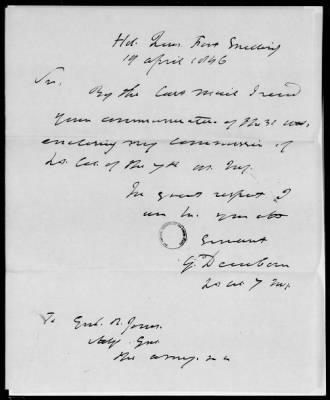 Hd. Qurs. Fort Snelling
19 April 1846
Sir,
By the last mail I recd
your communication of the 31 
enclosing my commission of
Lt. Col. of the 7th Inf.
With great respect I
am Sir your obt
Servant
G Dearborn
Lt Col 7 Inf.
To Genl. R. Jones.
Adjt. Genl
the army.